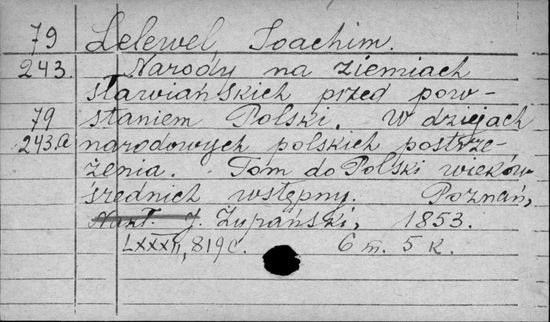 79 Lelewel, Joachim.
243. Narody na ziemiach
sławiańskich przed pow-
79 staniem Polski. W dziejach
243.a narodowych polskich postrze-
żenia. Tom do Polski wieków
średnich wstępny. Poznań,
Nakł. J. Żupański, 1853.
LXXXII, 819 c. 6 m. 5 k.